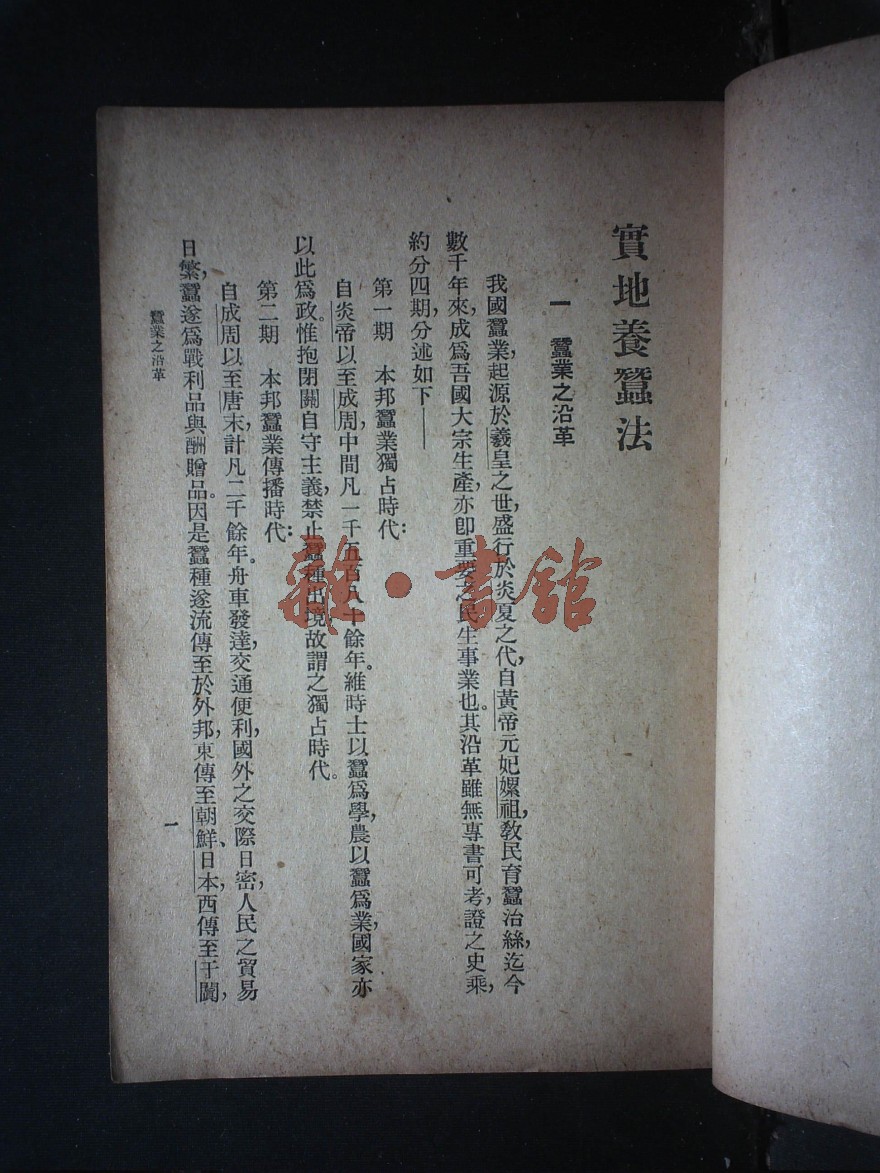 實地養蠶法
一　蠶業之沿革
我國蠶業，起源於羲皇之世，盛行於炎夏之代，自黃帝元妃嫘祖，敎民育蠶治絲，迄今
數千年來，成爲吾國大宗生產，亦卽重要之民生事業也。其沿革雖無專書可考，證之史乘，
約分四期，分述如下——
第一期　本邦蠶業獨占時代：
自炎帝以至成周，中間凡一千五百八十餘年。維時士以蠶爲學，農以蠶爲業，國家亦
以此爲政。惟抱閉關自守主義，禁止蠶種出境，故謂之獨占時代。
第二期　本邦蠶業傳播時代：
自成周以至唐末，計凡二千餘年。舟車發達，交通便利，國外之交際日密，人民之貿易
日繁，蠶遂爲戰利品與酬贈品。因是蠶種遂流傳至於外邦，東傳至朝鮮、日本，西傳至于闐，
蠶業之沿革
一
雜·書館